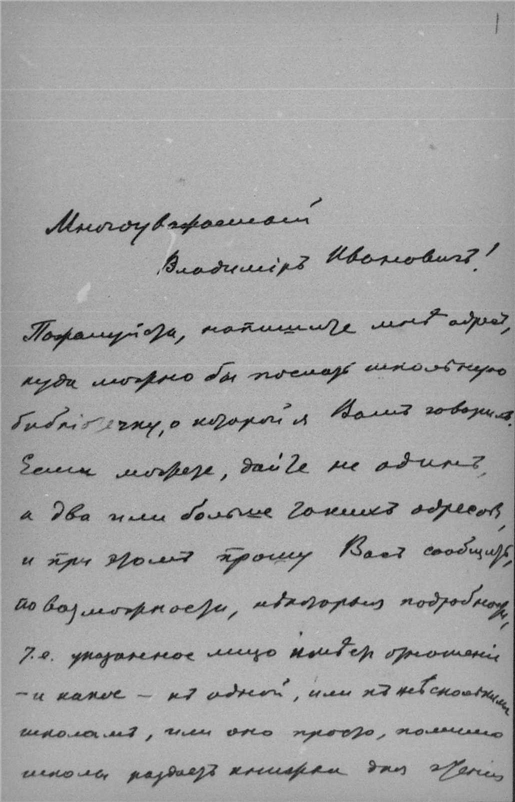 1
Многоуважаемый
Владиміръ Ивановичъ!
Пожалуйста, напишите мнѣ адресъ,
куда можно бы послать школьную
библіотечку, о которой я Вамъ говорилъ.
Если можете, дайте не одинъ,
а два или больше такихъ адресовъ,
и при этомъ прошу Васъ сообщить,
по возможности, нѣкоторыя подробности,
т.е. указанное лицо имѣетъ отношеніе
– и какое – къ одной, или къ нѣсколькимъ
школамъ, или оно просто, помимо
школы раздаетъ книжки для чтенія